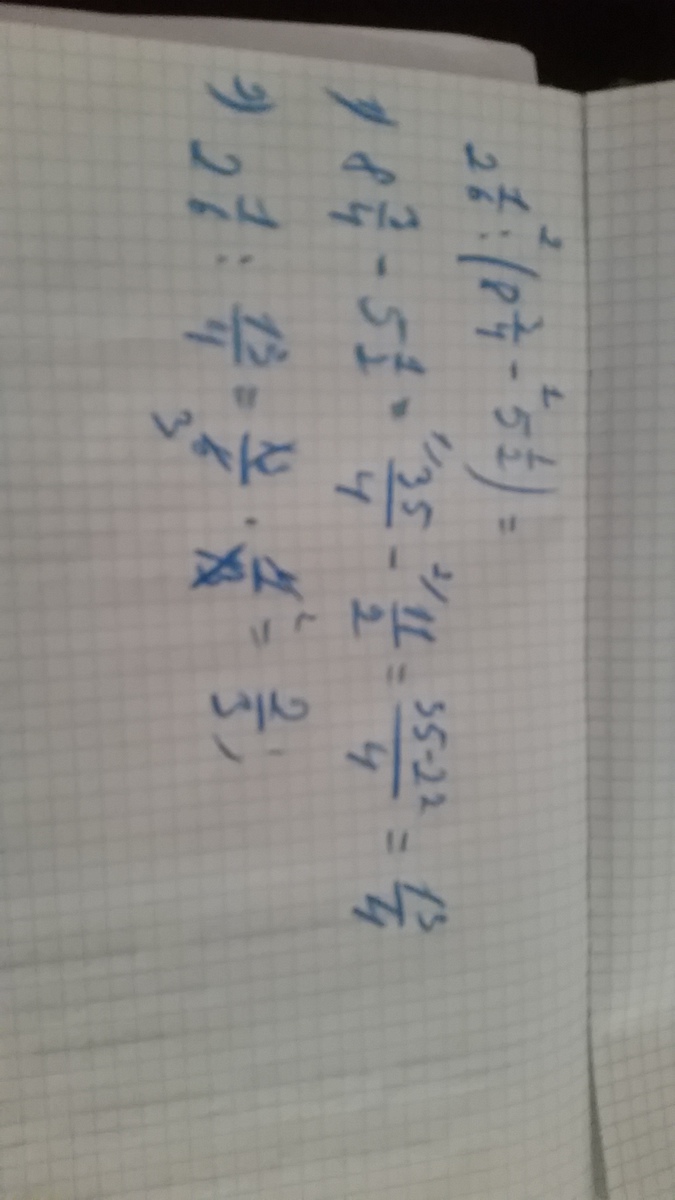 2 1/6 :² (8 3/4 -¹ 5 1/2) =
1) 8 3/4 - 5 1/2 = ¹⁾35/4 - ²⁾11/2 = 35-22/4 = 13/4
2) 2 1/6 : 13/4 = 13/6 3 · 4/13 ² = 2/3;